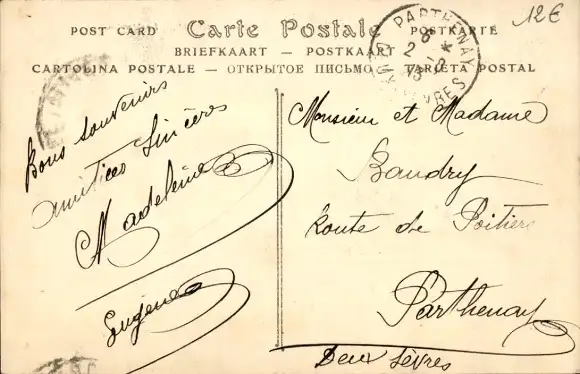 12€
POST CARD Carte Postale POSTKARTE
BRIEFKAART — POSTKAART
CARTOLINA POSTALE — ОТКРЫТОЕ ПИСЬМО — TARJETA POSTAL
PARTHENAY
8
2
13
SÈVRES
Bons souvenirs
amitiées sincères
Madeleine
Eugène
Monsieur et Madame
Baudry
Route de Poitiers
Parthenay
Deux Sèvres